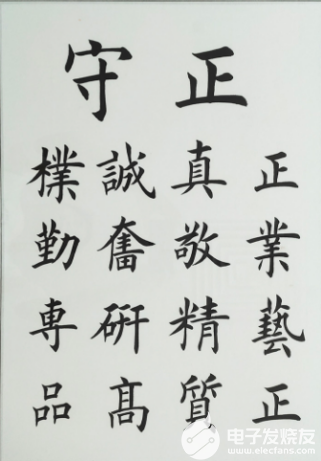 正守
正業藝正
真敬精質
誠奮研髙
樸勤専品
电子发烧友
www.elecfans.com